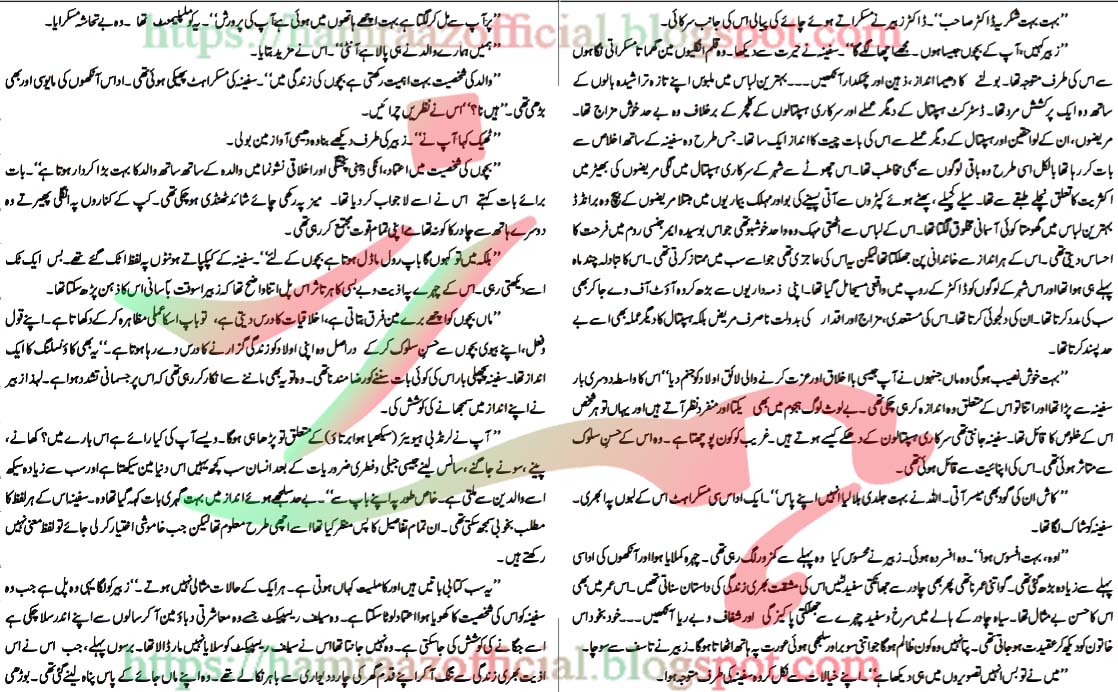 https://hamraazofficial.blogspot.com
’’بہت بہت شکریہ ڈاکٹر صاحب‘‘۔ ڈاکٹر زبیر نے مسکراتے ہوئے چائے کی پیالی اس کی جانب سرکائی۔
’’زبیر کہیں، آپ کے بچوں جیسا ہوں۔ مجھے اچھا لگے گا‘‘۔ سفینہ نے حیرت سے دیکھا۔ وہ قلم انگلیوں میں گھماتا مسکراتی نگاہوں
سے اس کی طرف متوجہ تھا۔ بولنے کا دھیما انداز، ذہین اور چمکدار آنکھیں۔۔۔ بہترین لباس میں ملبوس اپنے تازہ تراشیدہ بالوں کے
ساتھ وہ ایک پرکشش مرد تھا۔ ڈسٹرکٹ ہسپتال کے دیگر عملے اور سرکاری ہسپتالوں کے کلچر کے برخلاف وہ بے حد خوش مزاج تھا۔
مریضوں، ان کے لواحقین اور ہسپتال کے دیگر عملے سے اس کی بات چیت کا انداز ایک سا تھا۔ جس طرح وہ سفینہ کے ساتھ اخلاص سے
بات کر رہا تھا بالکل اسی طرح وہ باقی لوگوں سے بھی مخاطب تھا۔ اس چھوٹے سے شہر کے سرکاری ہسپتال میں لگی مریضوں کی بھیڑ میں
اکثریت کا تعلق نچلے طبقے سے تھا۔ میلے کچیلے، پھٹے ہوئے کپڑوں سے آتی پسینے کی بو اور مہلک بیماریوں میں مبتلا مریضوں کے بیچ وہ برانڈڈ
بہترین لباس میں گھومتا کوئی آسمانی مخلوق لگتا تھا۔ اس کے لباس سے اٹھتی مہک وہ واحد خوشبو تھی جو اس بوسیدہ ایمرجنسی روم میں فرحت کا
احساس دیتی تھی۔ اس کے ہر انداز سے خاندانی پن جھلکتا تھا لیکن یہ اس کی عاجزی تھی جو اسے سب میں ممتاز کرتی تھی۔ اس کا تبادلہ چند ماہ
پہلے ہی ہوا تھا اور اس شہر کے لوگوں کو ڈاکٹر کے روپ میں واقعی مسیحا مل گیا تھا۔ اپنی ذمہ داریوں سے بڑھ کر وہ آؤٹ آف وے جا کر بھی
سب کی مدد کرتا تھا۔ ان کی دلجوئی کرتا تھا۔ اس کی مستعدی، مزاج اور اقدار کی بدولت ناصرف مریض بلکہ ہسپتال کا دیگر عملہ بھی اسے بے
حد پسند کرتا تھا۔
’’بہت خوش نصیب ہو گی وہ ماں جنہوں نے آپ جیسی با اخلاق اور عزت کرنے والی لائق اولاد کو جنم دیا‘‘ اس کا واسطہ دوسری بار
سفینہ سے پڑا تھا اور اتنا تو اس کے متعلق وہ اندازہ کر ہی چکی تھی۔ بے لوث لوگ ہجوم میں بھی یکتا اور منفرد نظر آتے ہیں اور یہاں تو ہر شخص
اس کے خلوص کا قائل تھا۔ سفینہ جانتی تھی سرکاری ہسپتالوں کے دھکے کیسے ہوتے ہیں۔ غریب کو کون پوچھتا ہے۔ وہ اس کے حسنِ سلوک
سے متاثر ہوئی تھی۔ اس کی اپنائیت سے قائل ہوئی تھی۔
’’کاش ان کی گود بھی میسر آتی۔ اللہ نے بہت جلدی بلا لیا انہیں اپنے پاس‘‘۔ ایک اداس سی مسکراہٹ اس کے لبوں پہ ابھری۔
سفینہ کو شاک لگا تھا۔
’’اوہ، بہت افسوس ہوا‘‘۔ وہ افسردہ ہوئی۔ زبیر نے محسوس کیا وہ پہلے سے کمزور لگ رہی تھی۔ چہرہ کملایا ہوا اور آنکھوں کی اداسی
پہلے سے زیادہ بڑھ گئی تھی۔ گو اتنی عمر نا تھی پھر بھی چادر سے جھانکتی سفید لٹیں اس کی مشقت بھری زندگی کی داستان سناتی تھیں۔ اس عمر میں بھی
اس کا حسن بے مثال تھا۔ سیاہ چادر کے ہالے میں سرخ و سفید چہرے سے جھلکتی پاکیزگی اور شفاف و بے ریا آنکھیں۔۔۔ خود بخود اس
خاتون کو دیکھ کر عقیدت ہو جاتی تھی۔ پتا نہیں وہ کون ظالم ہو گا جو اتنی سوبر اور سلجھی ہوئی عورت پہ ہاتھ اٹھاتا ہو گا۔ زبیر نے تاسف سے سوچا۔
’’میں نے تو بس انہیں تصویروں میں ہی دیکھا ہے‘‘۔ اپنے خیالات سے نکل کر وہ سفینہ کی طرف متوجہ ہوا۔
’’پر آپ سے مل کر لگتا ہے بہت اچھے ہاتھوں میں ہوئی ہے آپ کی پرورش‘‘۔ یہ کومپلیمنٹ تھا۔ وہ بے تحاشہ مسکرایا۔
’’ہمیں ہمارے والد نے ہی پالا ہے آنٹی‘‘۔ اس نے مزید بتایا۔
’’والد کی شخصیت بہت اہمیت رکھتی ہے بچوں کی زندگی میں‘‘۔ سفینہ کی مسکراہٹ پھیکی ہوئی تھی۔ اداس آنکھوں کی مایوسی اور بھی
بڑھی تھی۔ ’’ہیں نا؟‘‘ اس نے نظریں چرائیں۔
’’ٹھیک کہا آپ نے‘‘۔ زبیر کی طرف دیکھے بنا وہ دھیمی آواز میں بولی۔
’’بچوں کی شخصیت میں اعتماد، انکی ذہنی پختگی اور اخلاقی نشوونما میں والدہ کے ساتھ ساتھ والد کا بہت بڑا کردار ہوتا ہے‘‘۔ بات
برائے بات کہتے اس نے اسے لاجواب کر دیا تھا۔ میز پہ رکھی چائے شائد ٹھنڈی ہو چکی تھی۔ کپ کے کناروں پہ انگلی پھیرتے وہ
دوسرے ہاتھ سے چادر کا کونہ تھامے اپنی تمام قوت مجتمع کر رہی تھی۔
’’بلکہ میں تو کہوں گا باپ رول ماڈل ہوتا ہے بچوں کے لئے‘‘۔ سفینہ کے کپکپاتے ہونٹوں پہ لفظ اٹک گئے تھے۔ بس ایک ٹک
اسے دیکھتی رہی۔ اس کے چہرے پہ اذیت و بے بسی کا ہر تاثر اس پل اتنا واضح تھا کہ زبیر اسوقت بآسانی اس کا ذہن پڑھ سکتا تھا۔
’’ماں بچوں کو اچھے برے میں فرق بتاتی ہے، اخلاقیات کا درس دیتی ہے، تو باپ اسکا عملی مظاہرہ کر کے دکھاتا ہے۔ اپنے قول
و فعل، اپنے بیوی بچوں سے حسنِ سلوک کر کے دراصل وہ اپنی اولاد کو زندگی گزارنے کا درس دے رہا ہوتا ہے‘‘۔ یہ بھی کاؤنسلنگ کا ایک
انداز تھا۔ سفینہ پچھلی بار اس کی کوئی بات سننے کو رضامند نا تھی۔ وہ تو یہ بھی ماننے سے انکار کر رہی تھی کہ اس پر جسمانی تشدد ہوا ہے۔ لہذا زبیر
نے اپنے انداز میں سمجھانے کی کوشش کی۔
’’آپ نے لرنڈ بی ہیویئر (سیکھا ہوا برتاؤ) کے متعلق تو پڑھا ہی ہو گا۔ ویسے آپ کی کیا رائے ہے اس بارے میں؟ کھانے،
پینے، سونے جاگنے، سانس لینے جیسی جبلی و فطری ضروریات کے بعد انسان سب کچھ یہیں اس دنیا میں سیکھتا ہے اور سب سے زیادہ سیکھ
اسے والدین سے ملتی ہے۔ خاص طور پہ اپنے باپ سے‘‘۔ بے حد سلجھے ہوئے انداز میں بہت گہری بات کہہ گیا تھا وہ۔ سفینہ اس کے ہر لفظ کا
مطلب بخوبی سمجھ سکتی تھی۔ ان تمام تفاصیل کا پس منظر کیا تھا اسے اچھی طرح معلوم تھا لیکن جب خاموشی اختیار کر لی جائے تو لفظ معنی نہیں
رکھتے ہیں۔
’’یہ سب کتابی باتیں ہیں اور کاملیت کہاں ہوتی ہے۔ ہر ایک کے حالات مثالی نہیں ہوتے۔‘‘ زبیر کو لگا یہی وہ پل ہے جب وہ
سفینہ کو اس کی شخصیت کا کھویا ہوا اعتماد لوٹا سکتا ہے۔ وہ سیلف ریسپیکٹ جسے وہ معاشرتی دباؤ میں آ کر سالوں سے اپنے اندر سلا چکی ہے
اسے جگانے کی کوشش کی جا سکتی ہے۔ وہ نہیں جانتا تھا اس نے سیلف ریسپیکٹ کو سلایا نہیں مار ڈالا تھا۔ برسوں پہلے، جب اس نے اس
اذیت بھری زندگی سے تنگ آ کر اپنے قدم گھر کی چار دیواری سے باہر نکالے تھے۔ وہ اپنے ماں جائے کے پاس پناہ لینے گئی تھی۔ بوڑھی
https://hamraazofficial.blogspot.com